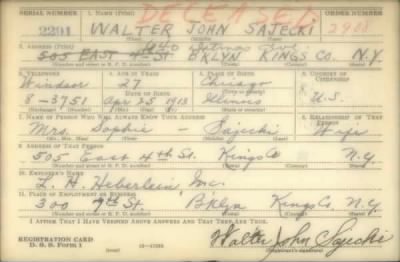 DECEASED
SERIAL NUMBER 1. NAME (Print) ORDER NUMBER
2291 WALTER JOHN SAJECKI 2901
(First) (Middle) (Last)
2. ADDRESS (Print)
505 EAST 4th ST. BKLYN KINGS CO. N.Y.
(Number and street or R. F. D. number) (Town) (County) (State)
3. TELEPHONE 4. AGE IN YEARS 5. PLACE OF BIRTH 6. COUNTRY OF CITIZENSHIP
Windsor 27 Chicago
DATE OF BIRTH (Town or county)
8-3751 Apr 25 1913 Illinois U.S.
(Exchange) (Number) (Mo.) (Day) (Yr.) (State or country)
7. NAME OF PERSON WHO WILL ALWAYS KNOW YOUR ADDRESS 8. RELATIONSHIP OF THAT PERSON
Mrs. Sophie - Sajecki Wife
(Mr., Mrs., Miss) (First) (Middle) (Last)
9. ADDRESS OF THAT PERSON
505 East 4th St. Kings Co N.Y.
(Number and street or R. F. D. number) (Town) (County) (State)
10. EMPLOYER'S NAME
L. H. Heberlein Inc.
11. PLACE OF EMPLOYMENT OR BUSINESS
300 9th St. Bklyn Kings Co. N.Y.
(Number and street or R. F. D. number) (Town) (County) (State)
I AFFIRM THAT I HAVE VERIFIED ABOVE ANSWERS AND THAT THEY ARE TRUE.
REGISTRATION CARD
D. S. S. Form 1 Walter John Sajecki
(Registrant's signature)